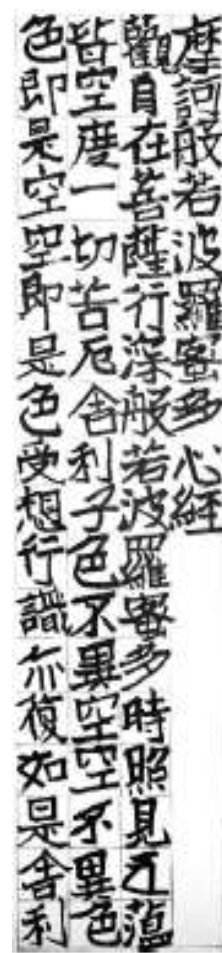 摩訶般若波羅蜜多心経
觀自在菩薩行深般若波羅蜜多時照見五蘊
皆空度一切苦厄舎利子色不異空空不異色
色即是空空即是色受想行識亦復如是舎利